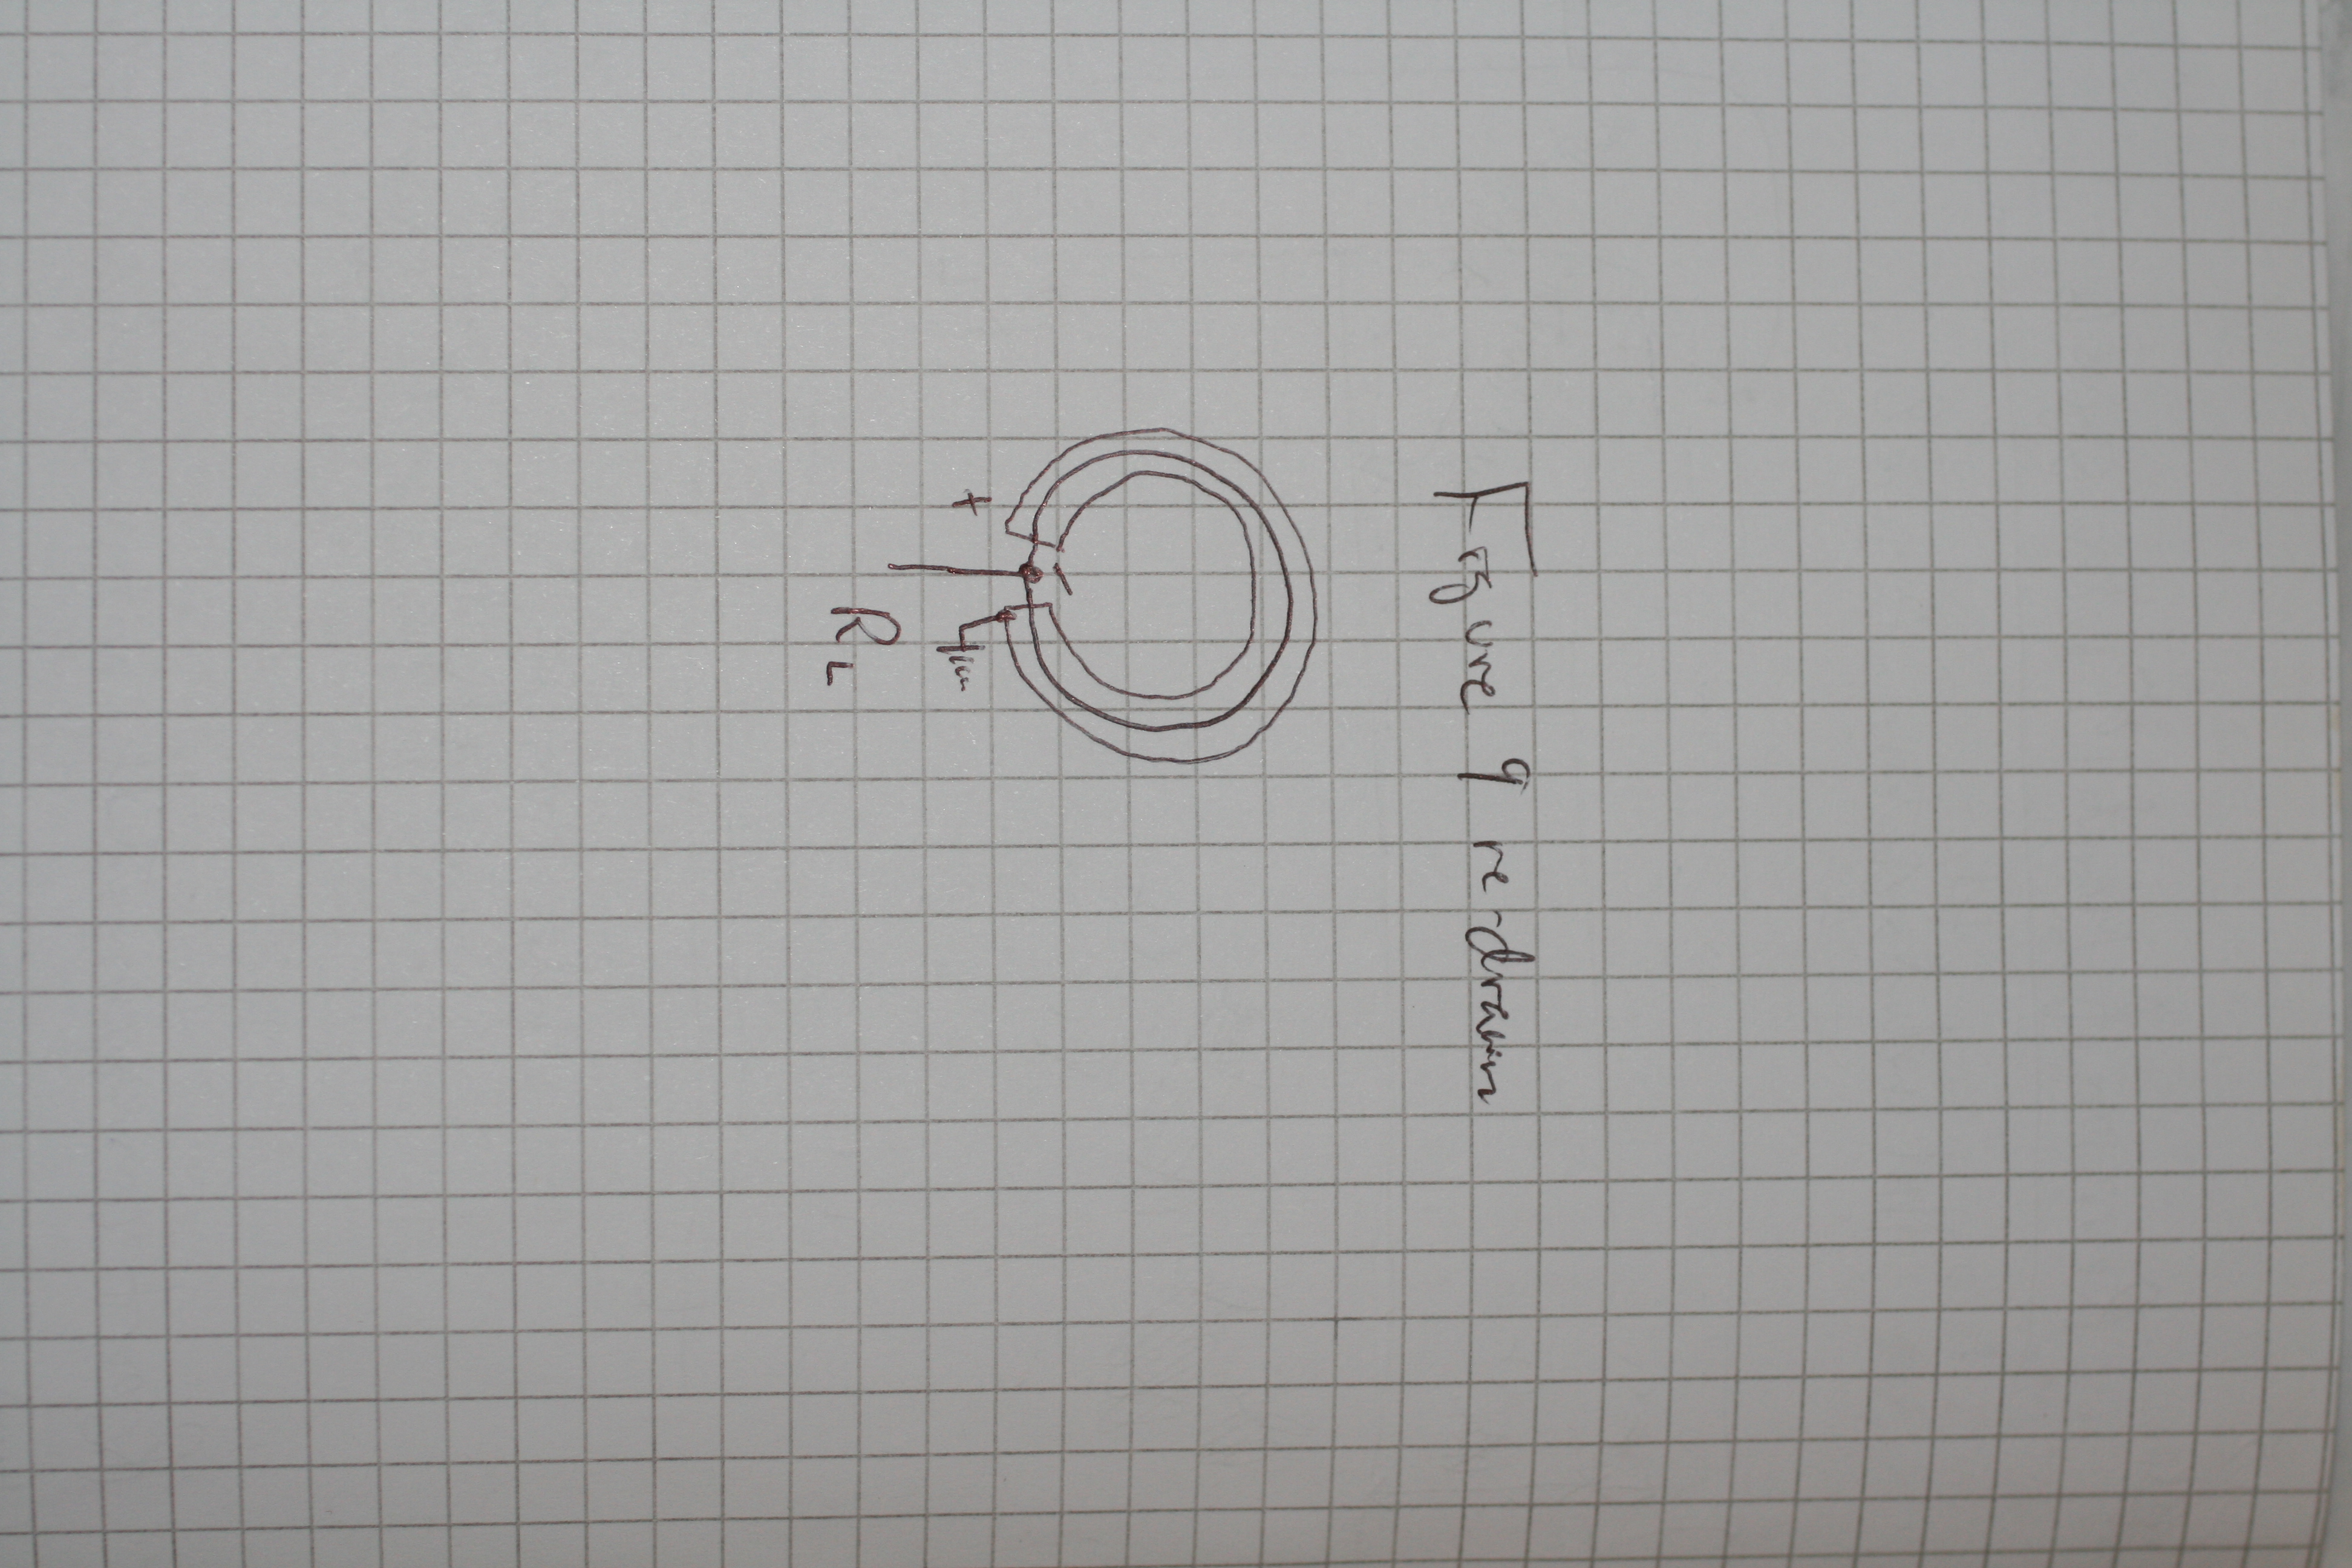 Figure 9 re-drawin
+
-
R_L